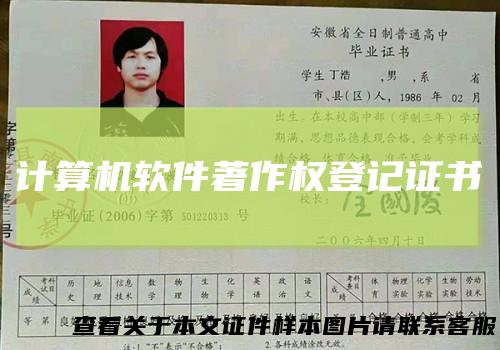 安徽省全日制普通高中
毕业证书
学生 丁浩 ,男 ,系 省
市、县(区)人，1986 年 02 月
出生。在本校高中部（学制三年）学习
期满，思想品德表现合格，会考学科成
计算机软件著作权登记证书
校长：
毕业证(2006)字第 501220313 号
二00六年四月十日
考试科目 历史 地理 信息技术 数学 物理 生物 化学 英语 政治 语文
成绩
等第
考查科目 体育 物理实验 化学实验 生物实验 劳动技术
成绩
查看关于本文证件样本图片请联系客服
注:1."不"表示"不合格"; 2.各科成绩涂改无效。